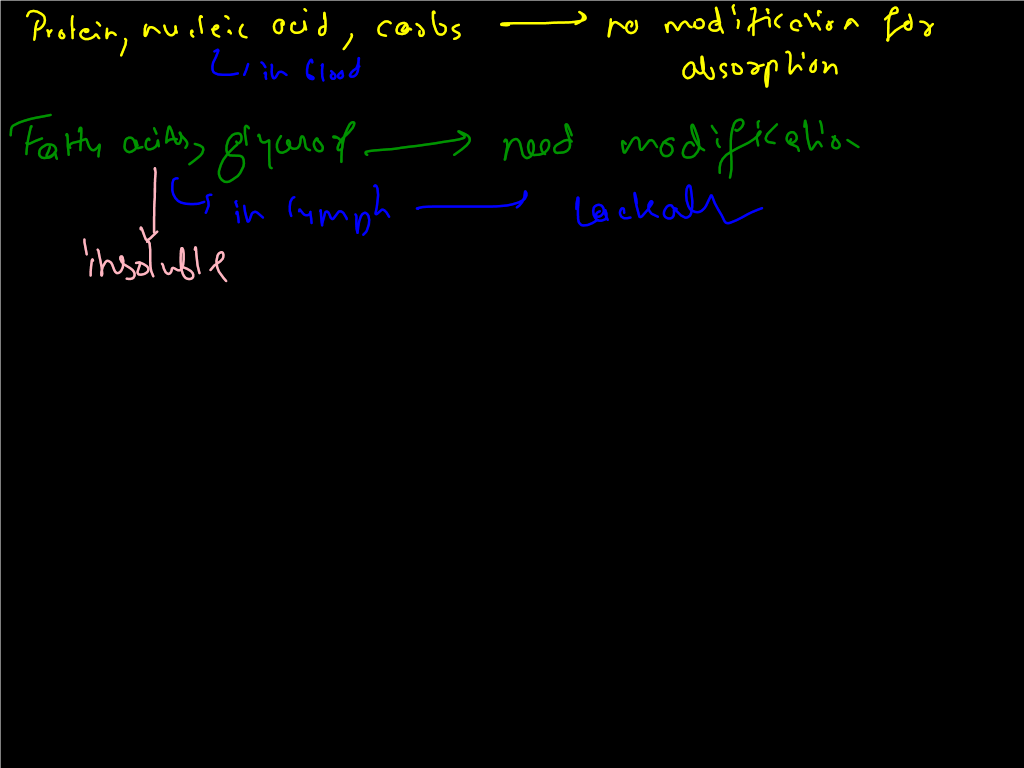 Protein, nucleic acid, carbs → no modification for
absorption
in blood
Fatty acids, glycerol → need modification
in lymph → Lacteal
insoluble